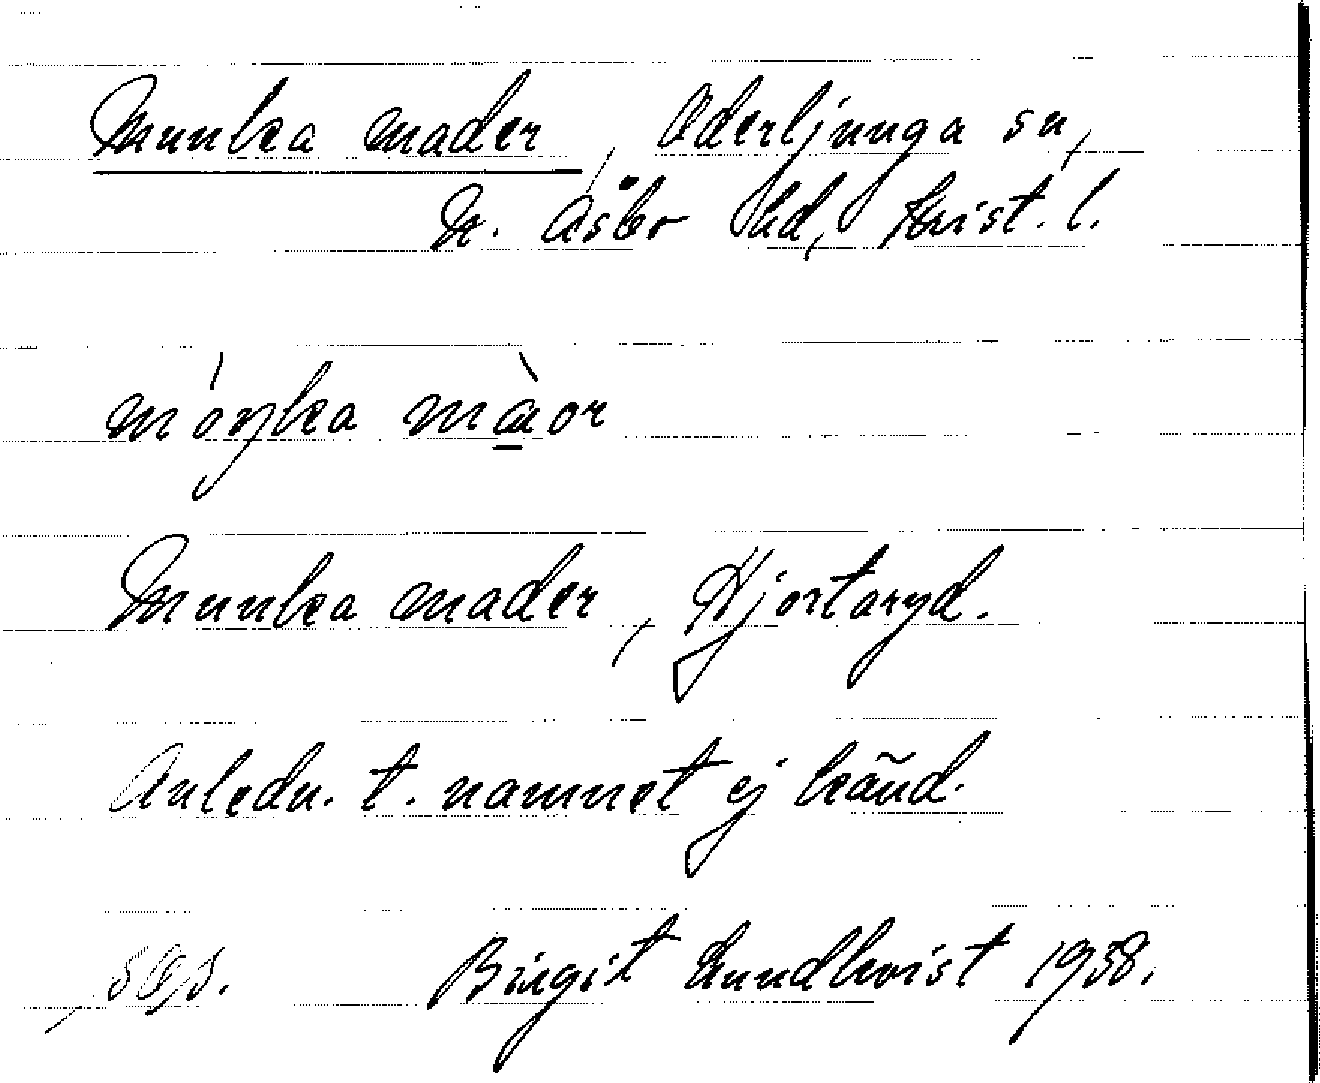 Munka mader, Oderljunga sn,
N. Åsbo hd, Krist. l.
móŋka màor
Munka mader, Hjortaryd.
Anledn. t. namnet ej känd.
Birgit Lundkvist 1938.